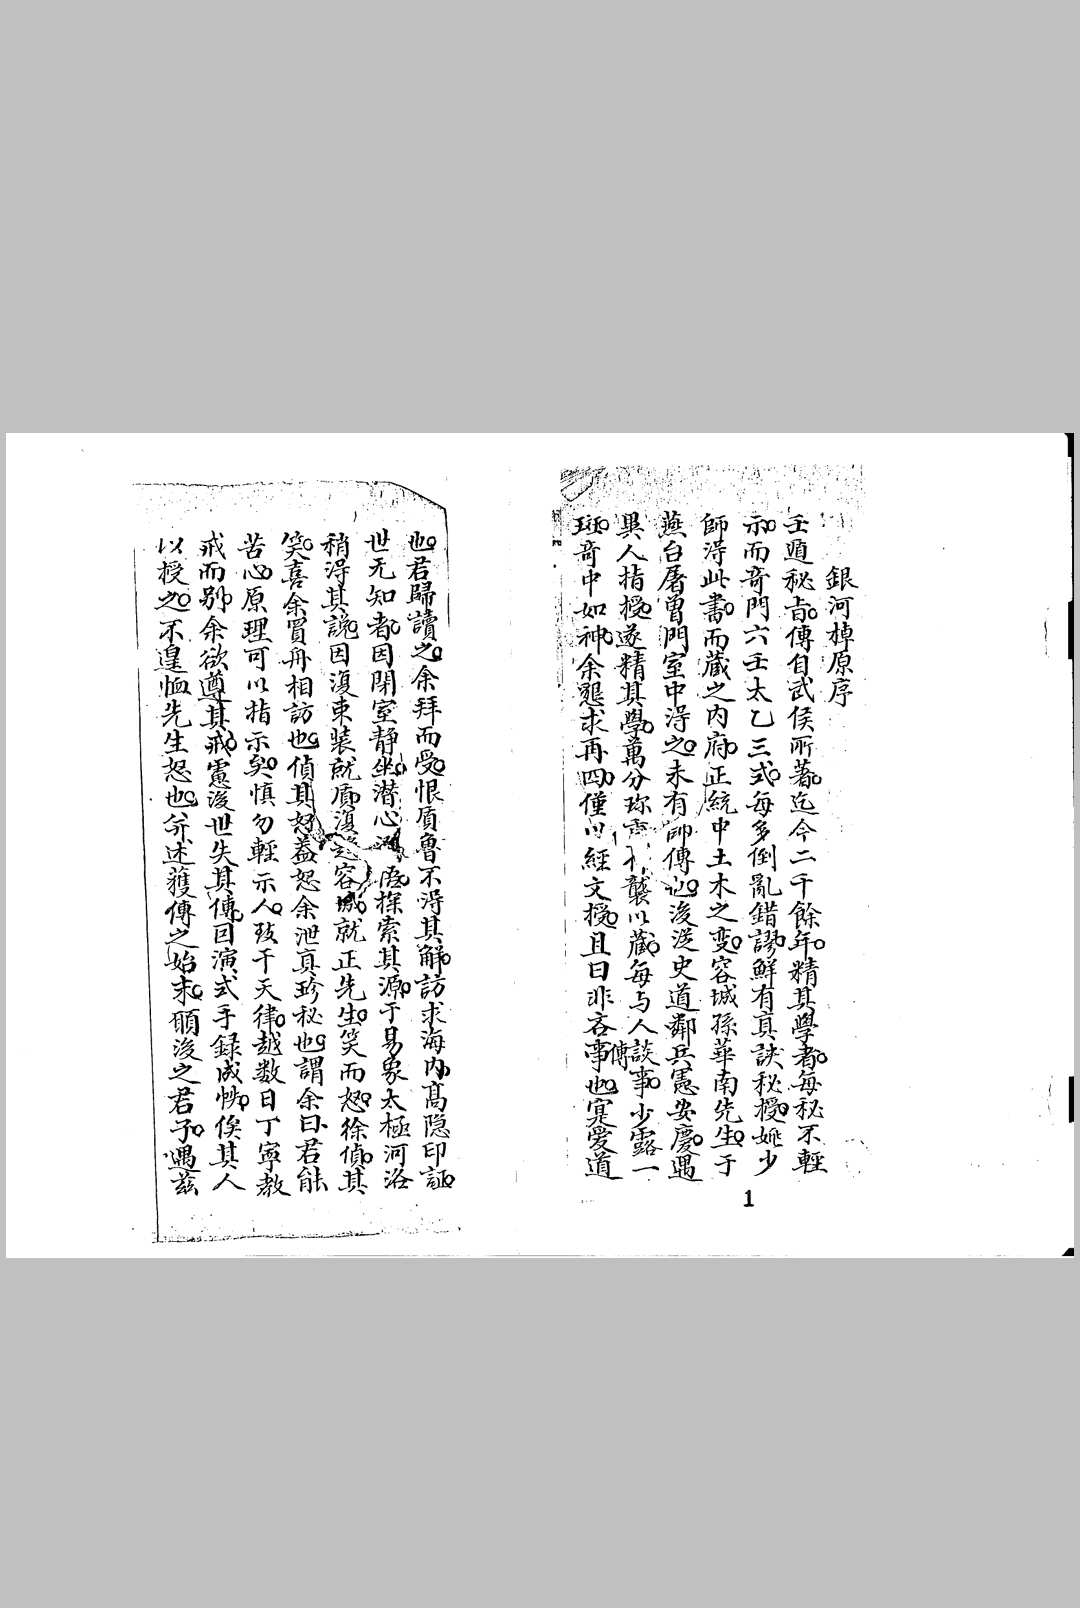 銀河棹原序
壬遁秘旨。傳自武侯所著。迄今二千餘年。精其學者。每秘不輕
示。而奇門六壬太乙三式。每多倒亂錯謬。鮮有真訣秘授。姚少
師淂此書。而藏之内府。正統中土木之变。容城孫華南先生。于
燕台屠曽門室中淂之。未有師傳也。後遊史道鄰兵憲安慶。遇
異人指授。遂精其學。萬分珎 襲以藏。每与人談事。少露一
斑。奇中如神。余懇求再四。僅以經文授。且曰非吝傳事也。寔愛道
也。君歸讀之。余拜而受。恨質魯不淂其解。訪求海内髙隐印証。
世无知者。因閉室静坐。潜心 悟。探索其源。于易象太極河洛
稍淂其説。因復束装就 復 容城。就正先生。笑而怒。徐偵其
笑。喜余買舟相訪也。偵其怒。葢怒余泄真珍秘也。謂余曰。君能
苦心。原理可以指示矣。慎勿輕示人。致干天律。越数日丁寧教
戒而别。余欲遵其戒。慮後世失其傳。囙演式手録成帙。俟其人
以授之。不遑恤先生怒也。并述獲傳之始末。願後之君子。遇茲
1